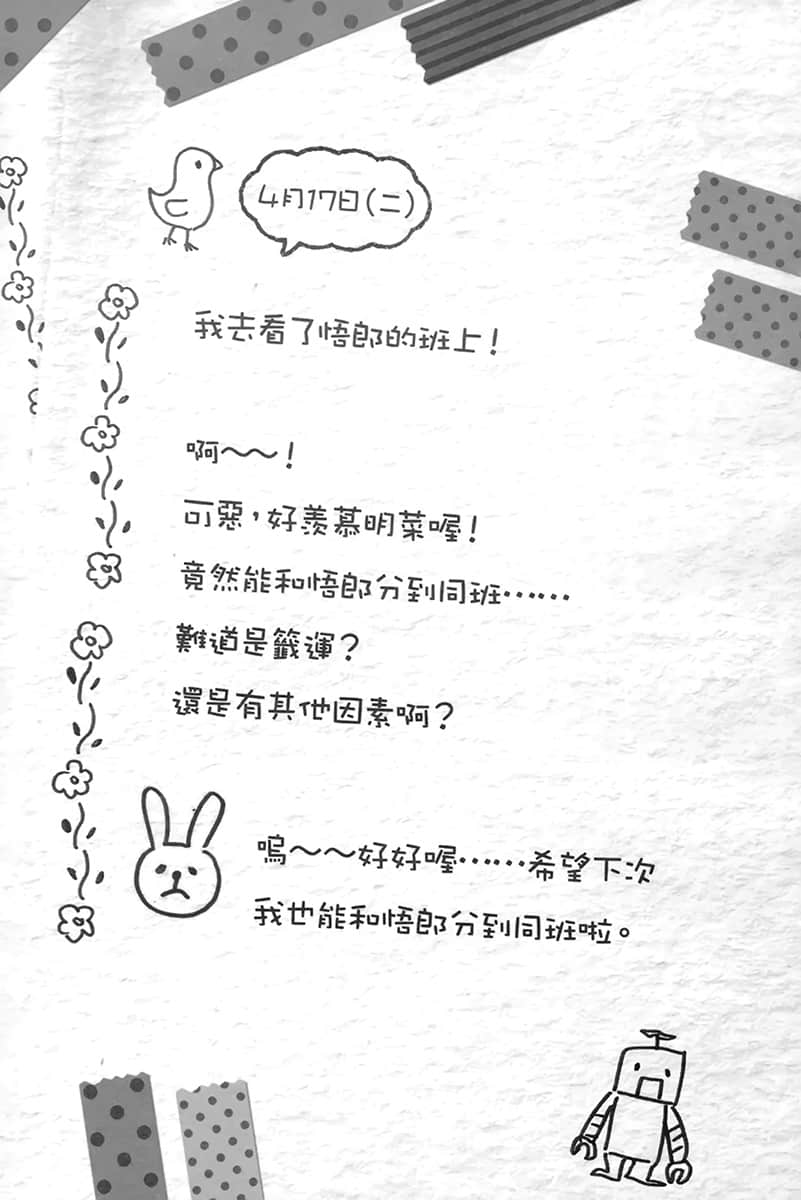 4月17日(二)
我去看了悟郎的班上!
啊～～!
可惡,好羨慕明菜喔!
竟然能和悟郎分到同班……
難道是籤運?
還是有其他因素啊?
嗚～～好好喔……希望下次
我也能和悟郎分到同班啦。